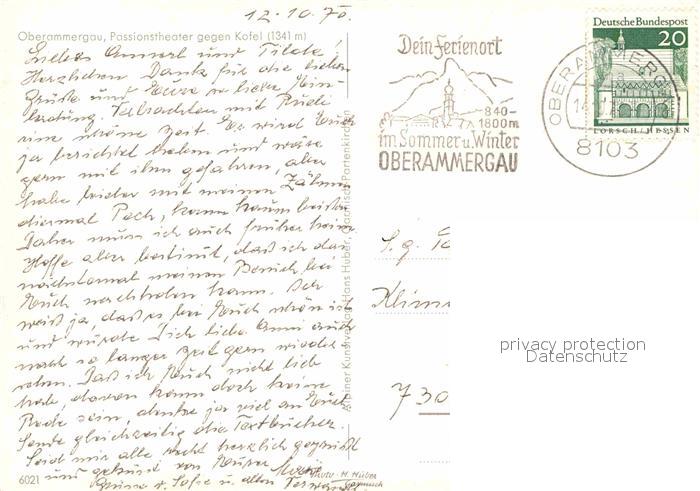 12.10.70.
Oberammergau, Passionstheater gegen Kofel (1341 m)
Liebes Annerl und
Herzlichen Dank für die lieben
Grüße und Eure so liebe Ein-
ladung. mit
eine schöne Zeit. Er wird Euch
ja berichtet haben und wäre
gern mit ihm gefahren, aber
habe leider mit meinen Zähnen
diesmal Pech, kann kaum beißen
Daher muss ich auch früher heim
Hoffe aber bestimmt, daß ich das
nächstemal meinen Besuch bei
Euch nachholen kann. Ich
weiß ja, daß es bei Euch schön ist
und würde Dich liebe Anni auch
nach so langer Zeit gern wieder
sehen. Daß ich Euch nicht lieb
hab, davon kann doch keine
Rede sein, denke ja viel an Euch
Sende gleichzeitig die Textbücher.
Seid mir alle recht herzlich gegrüßt
und geküsst von Eurer
Grüsse v. Sofie u. allen Verwandten
6021
Photo H. Huber
Garmisch
Alpiner Kunstverlag Hans Huber, Garmisch-Partenkirchen
Dein Ferienort
840-
1800m
im Sommer u. Winter
OBERAMMERGAU
OBERAMMERGAU
8103
Deutsche Bundespost
20
LORSCH/HESSEN
S. g.
730
privacy protection
Datenschutz